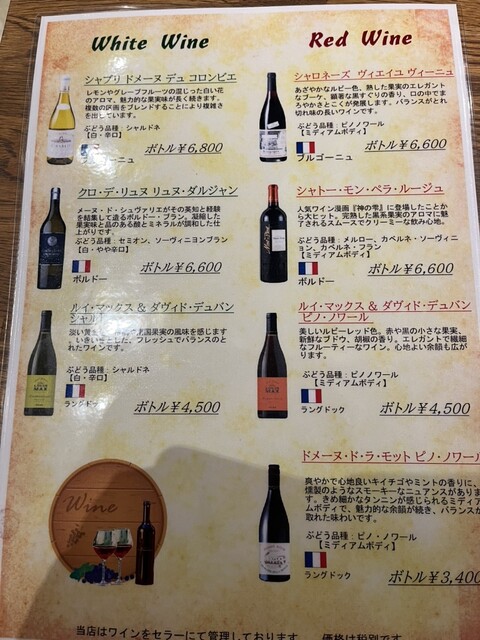 White Wine
シャブリ ドメーヌ デュ コロンビエ
レモンやグレープフルーツの混じった白い花
のアロマ。魅力的な果実味が長く続きます。
複数の区画をブレンドすることにより複雑さ
を出しています。
ぶどう品種：シャルドネ
【白・辛口】
ボトル￥6,800
クロ・デ・リュヌ リュヌ・ダルジャン
メーヌ・ド・シュヴァリエがその英知と経験
を結集して造るボルドー・ブラン。凝縮した
果実味と品のある酸とミネラルが調和した仕
上がりです。
ぶどう品種：セミオン、ソーヴィニヨンブラン
【白・やや辛口】
ボトル￥6,600
ボルドー
ルイ・マックス ＆ ダヴィド・デュバン
果実の風味を感じます
フレッシュでバランスのと
れたワインです。
ぶどう品種：シャルドネ
【白・辛口】
ボトル￥4,500
ラングドック
Wine
Red Wine
シャロネーズ ヴィエイユ ヴィーニュ
あざやかなルビー色、熟した果実のエレガント
なブーケ、顕著な黒すぐりの香り、口の中でま
ろやかさとこくが発展します。バランスがとれ
切れ味の長いワインです。
ぶどう品種：ピノノワール
【ミディアムボディ】
ボトル￥6,600
ブルゴーニュ
シャトー・モン・ペラ・ルージュ
人気ワイン漫画『神の雫』に登場したことか
ら大ヒット。完熟した黒系果実のアロマに魅
了されるスムースでクリーミーな飲み心地。
ぶどう品種：メルロー、カベルネ・ソーヴィニ
ヨン、カベルネ・フラン
【ミディアムボディ】
ボトル￥6,600
ボルドー
ルイ・マックス ＆ ダヴィド・デュバン
ピノ・ノワール
美しいルビーレッド色。赤や黒の小さな果実、
新鮮なブドウ、胡椒の香り。エレガントで繊細
なフルーティーなワイン。心地よい余韻も広が
ります。
ぶどう品種：ピノノワール
【ミディアムボディ】
ボトル￥4,500
ラングドック
ドメーヌ・ド・ラ・モット ピノ・ノワール
爽やかで心地良いキイチゴやミントの香りに、
燻製のようなスモーキーなニュアンスがありま
す。きめ細かなタンニンが感じられるミディア
ムボディで、魅力的な余韻が続き、バランスが
取れた味わいです。
ぶどう品種：ピノ・ノワール
【ミディアムボディ】
ラングドック
ボトル￥3,400
当店はワインをセラーにて管理しております。 価格は税別です